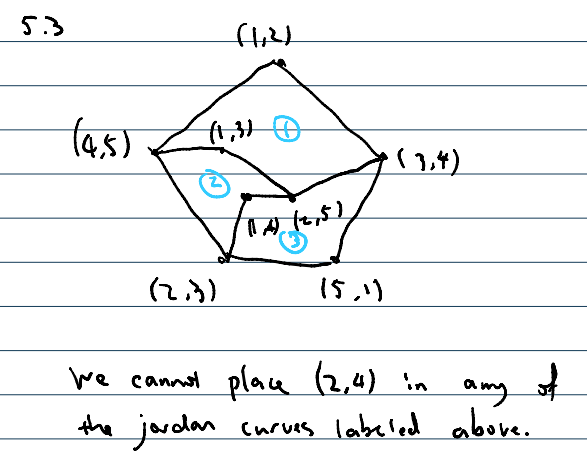 5.3
(1,2)
(4,5)
(1,3)
1
(3,4)
2
(1,4) (2,5)
3
(2,3)
(5,1)
We cannot place (2,4) in any of
the jordan curves labeled above.